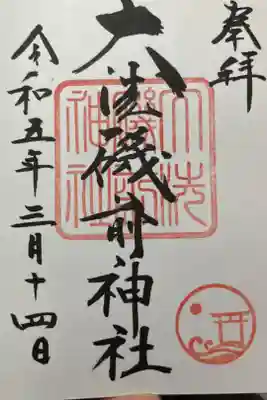 奉拝
大洗磯前神社
大洗磯前神社
令和五年三月十四日